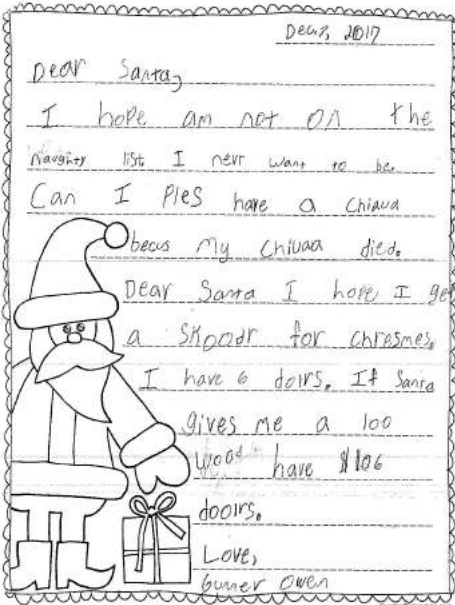 Dec 7, 2017
Dear Santa,
I hope am not on the
Naughty list I nevr want to be.
Can I Ples have a Chiaua
becus my Chiuaa died.
Dear Santa I hope I get
a skoodr for chresmes.
I have 6 dolrs. If Santa
gives me a 100
wood have $106
doolrs.
Love,
Gunner Owen